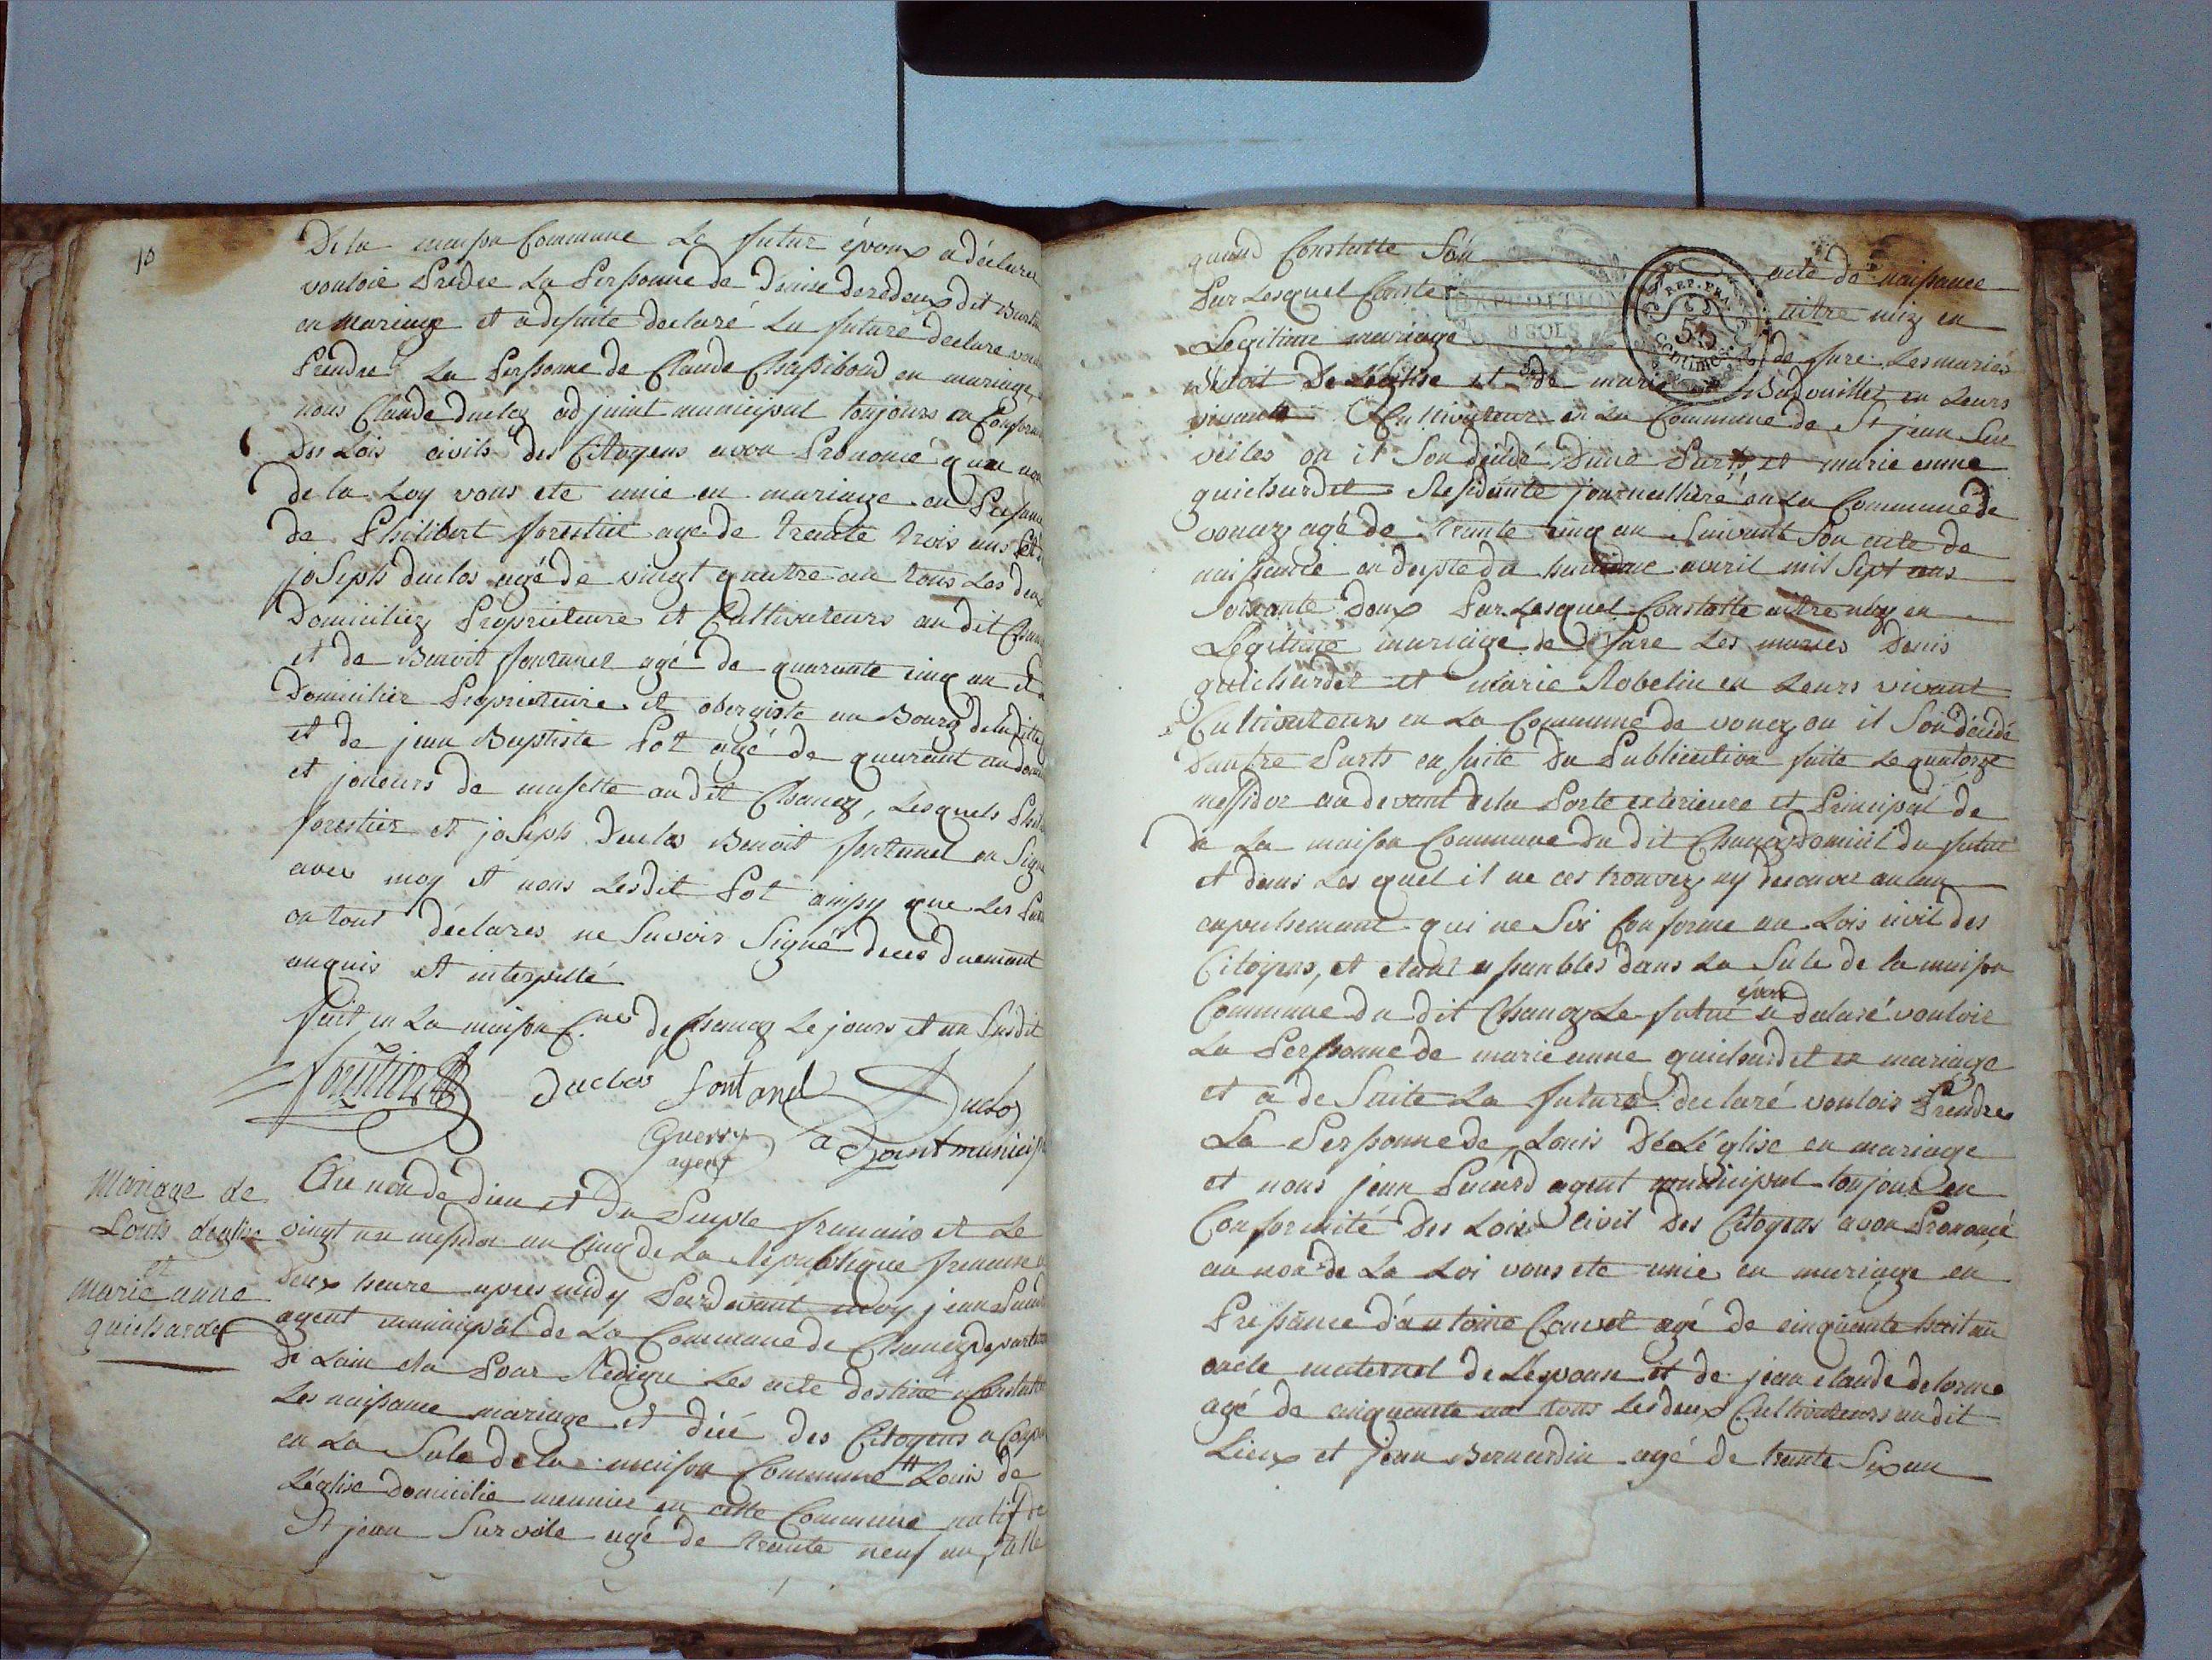 10
De la maison Commune Le futur époux a déclaré
vouloir Predre La Personne de Denise deredeux dit
en Mariage et a desuite declaré La future declare
Prendre La Personne de Claude Chapiboud en mariage
nous Claude duclos adjoint municipal toujours en
Des Lois civils des Citoyens avon Prononcé
de la Loy vous ete unie en mariage en
de Philibert forestier age de trente trois ans
joseph duclos agé de vingt quatre an tous Les deux
Domiciliez Proprieteure et Cultivateurs au dit
et de Benoit fontanel agé de quarante cinq an
Domicilier Proprietaire et obergiste au Bourg
et de jean Baptiste Pot agé de quarant
et joueurs de musette au dit Chanoz, Lesquels
forestier et joseph Duclos Benoit fontanel on
avec moy et nous Lesdit Pot ainsy que Les
on tout déclares ne Savoir Signé de ce duemant
anquis et interpellé
fait en La maison C.nes de Chanoz Le jours et an Susdit
Duclos fontanel Duclos
Guerry agent adjoint
Mariage de
Louis deglise
et
Marie anne
guichardet
Au non de dieu et Du Peuple francais et Le
vingt un mesidor an Cinq de La Republique francaise
Deux heure apres midy Pardevant moy jean
agent municipal de La Commune de Chanoz
de Lain ela Pour Redigre Les acte destiné a Constatte
Les naissance mariage et décé des Citoyens a
en La Sale de la maison Commune # Louis de
Léglise domicilie meunier en cette Commune natif de
St jean Survele agé de trente neuf an
quand Constatte Son acte de naissance
Par Lesquel Conste aitre niez en
Legitime mariage de fare Les mariés
EXPEDITION
8 SOLS
REP. FRA
De Léglise et de marie Badouillet en Leurs
vivante Cultivateur en La Commune de St jean Sur
veiles on il Son décédé D'une Parts et marie anne
guichardet Residante journallière en La Commune de
vonnez agé de trante cinq an Suivant Son acte de
naissance en dapte du huitième avril mil Sept cens
Soixante Doux Par Lesquel Constatte aitre néz en
Légitime mariage de fare Les maries Denis
guichardet et marie Robelin en Leurs vivant
Cultivateurs en La Commune de vonez on il Son décédé
Dautre Parts en suite Du Publication faite Le quatorze
messidor au devant de la Porte exterieure et Principal de
de La maison Commune du dit Chanoz Domicil du futur
et dans Les quel il ne ces trouvez ny decouver aucun
enpechemant qui ne Soi Conforme au Lois civil des
Citoyens, et etant dans La Sale de la maison
Commune du dit Chanoz Le futur époux a declaré vouloir
La Personne de marie anne guichardet en mariage
et a de Suite La future declaré voulois Prendre
La Personne de Louis DéLéglise en mariage
et nous jean agent municipal toujour en
Conformité Des Lois Civil Des Citoyens avon Prononcé
au non de La Loi vous ete unie en mariage en
Presance d'antoine Couvet agé de cinquante huit an
oncle maternel de L'epoux et de jean claude delorme
agé de cinquante an tous Les deux Cultivateurs au dit
Lieux et jean Bernardin agé de trente Six an